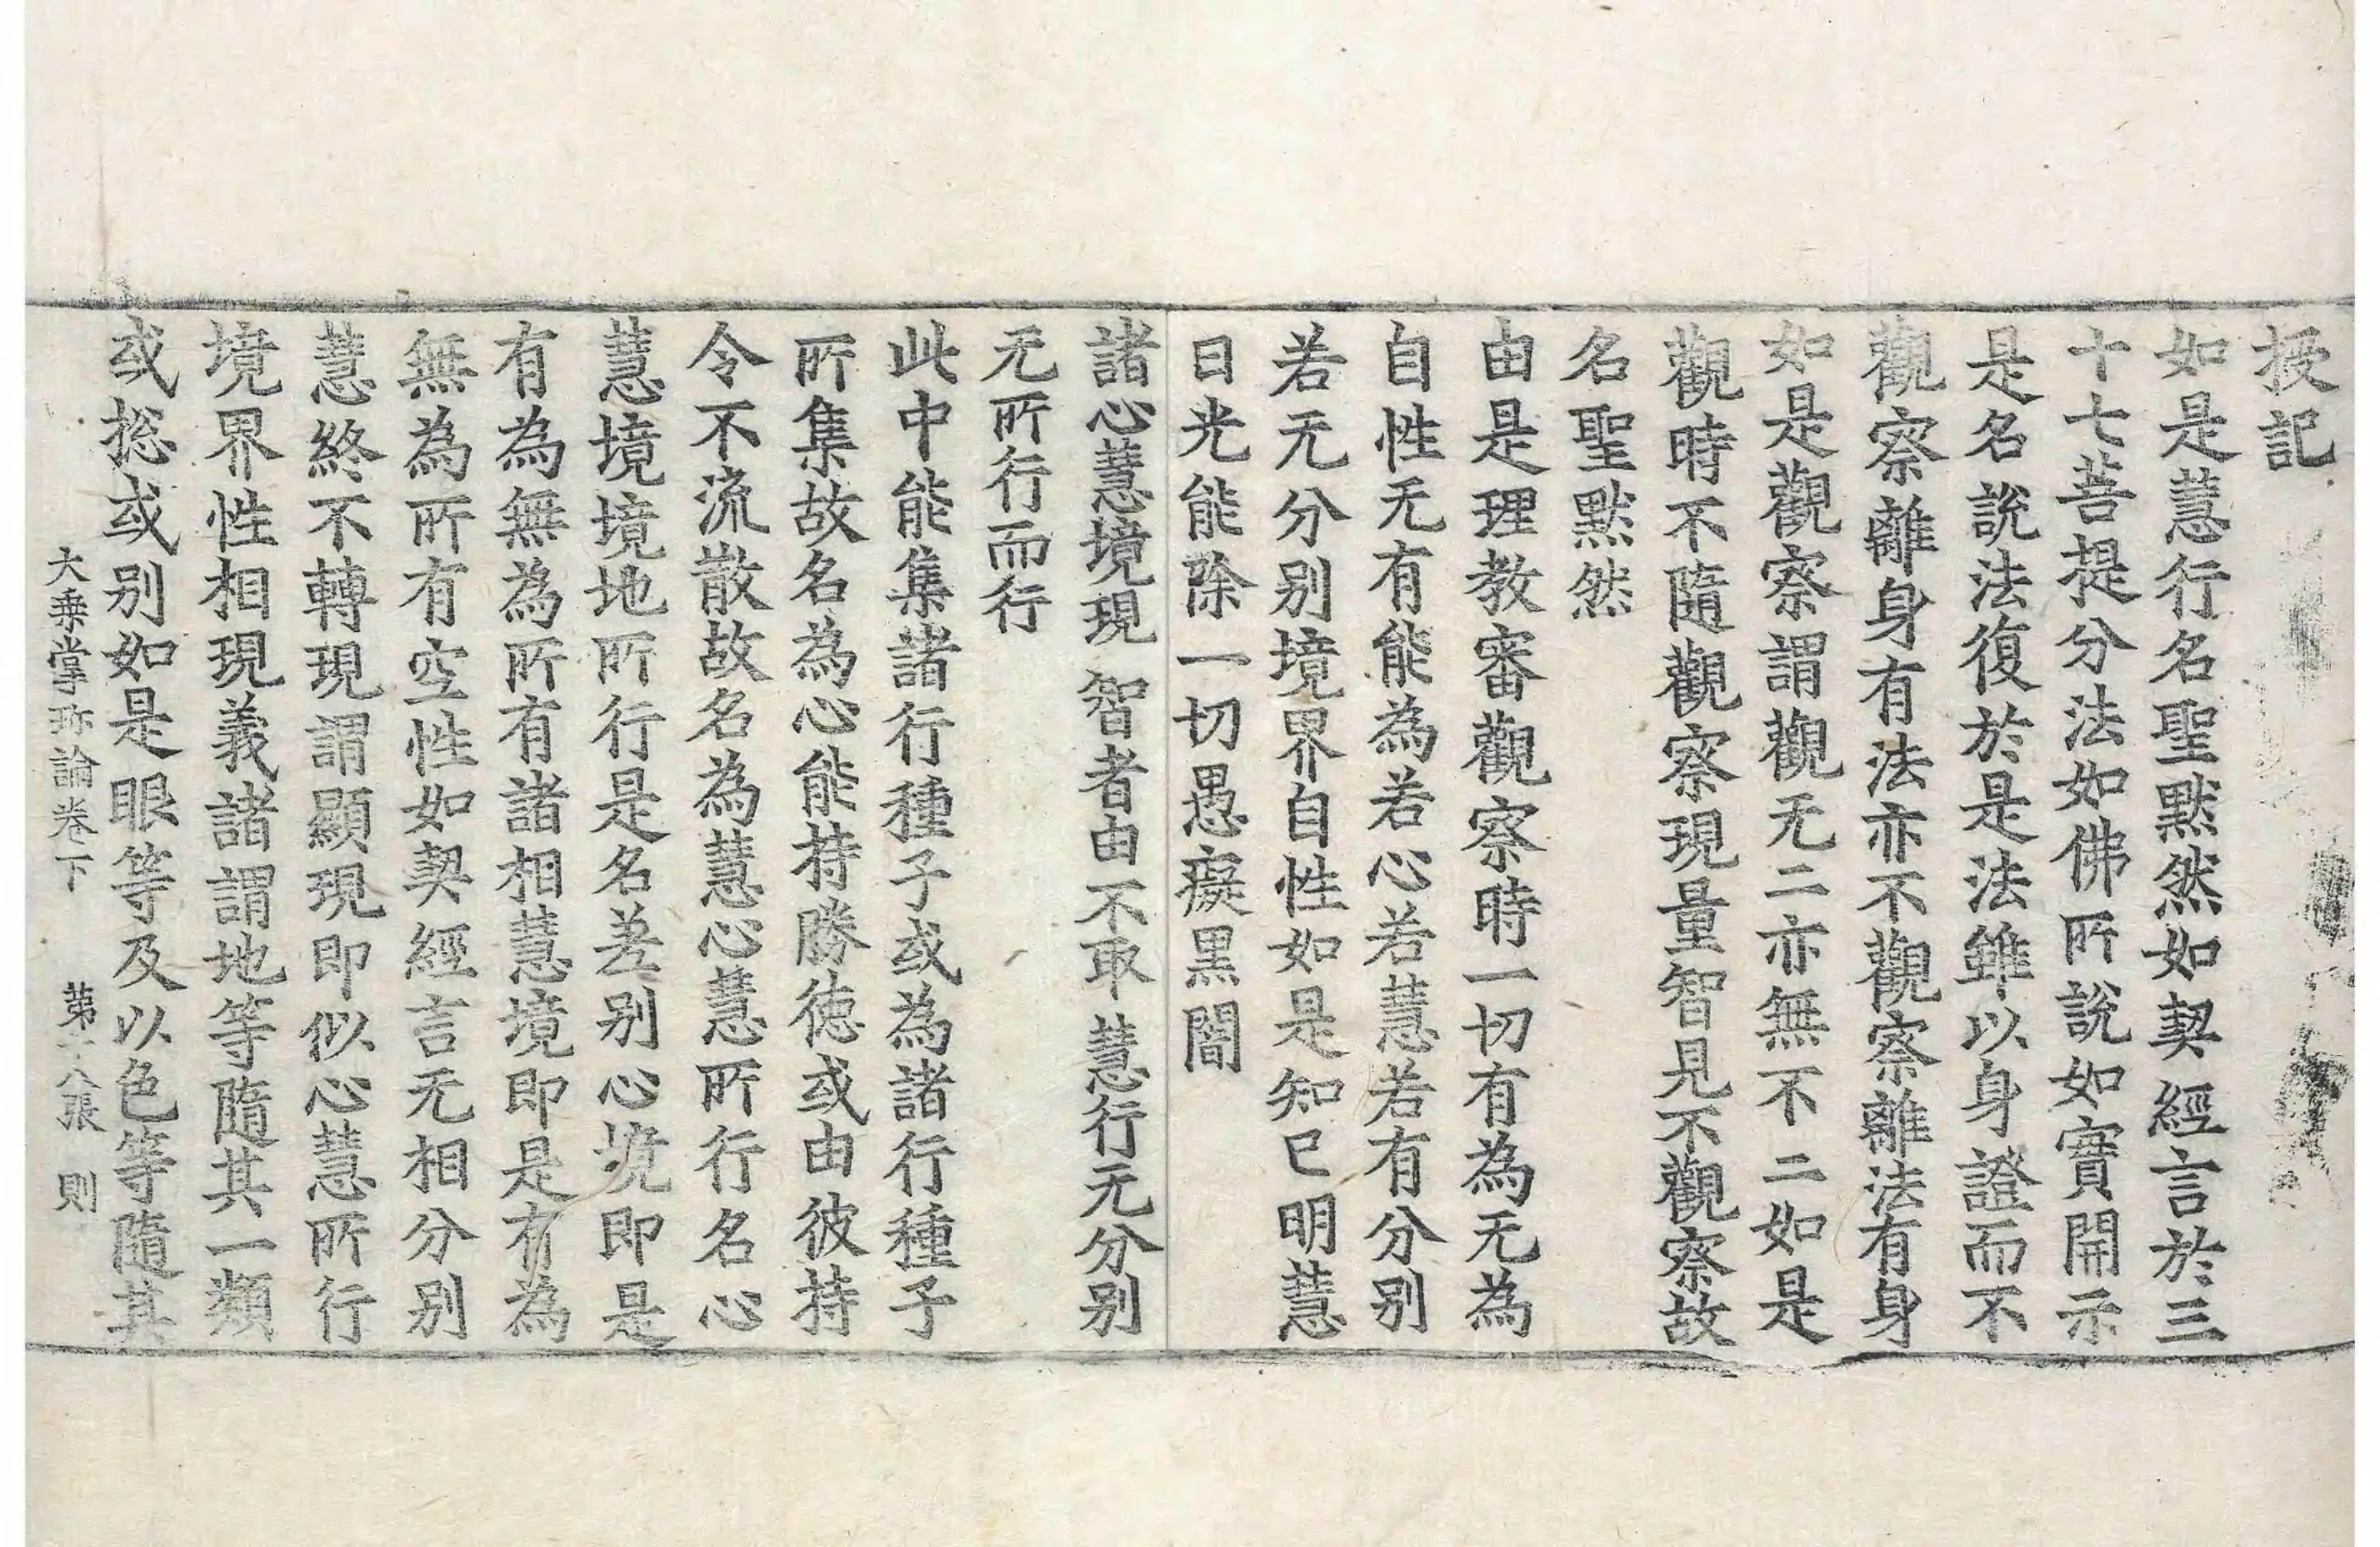 授記
如是慧行名聖默然如契經言於三
十七菩提分法如佛所說如實開示
是名說法復於是法雖以身證而不
觀察離身有法亦不觀察離法有身
如是觀察謂觀无二亦無不二如是
觀時不隨觀察現量智見不觀察故
名聖默然
由是理教審觀察時一切有為无為
自性无有能為若心若慧若有分別
若无分別境界自性如是知已明慧
日光能除一切愚癡黑闇
諸心慧境現 智者由不取 慧行无分別
无所行而行
此中能集諸行種子或為諸行種子
所集故名為心能持勝德或由彼持
令不流散故名為慧心慧所行名心
慧境境地所行是名差別心境即是
有為無為所有諸相慧境即是有為
無為所有空性如契經言无相分別
慧終不轉現謂顯現即似心慧所行
境界性相現義諸謂地等隨其一類
或捴或別如是眼等及以色等隨其
大乘掌珍論卷下 第 八張 則